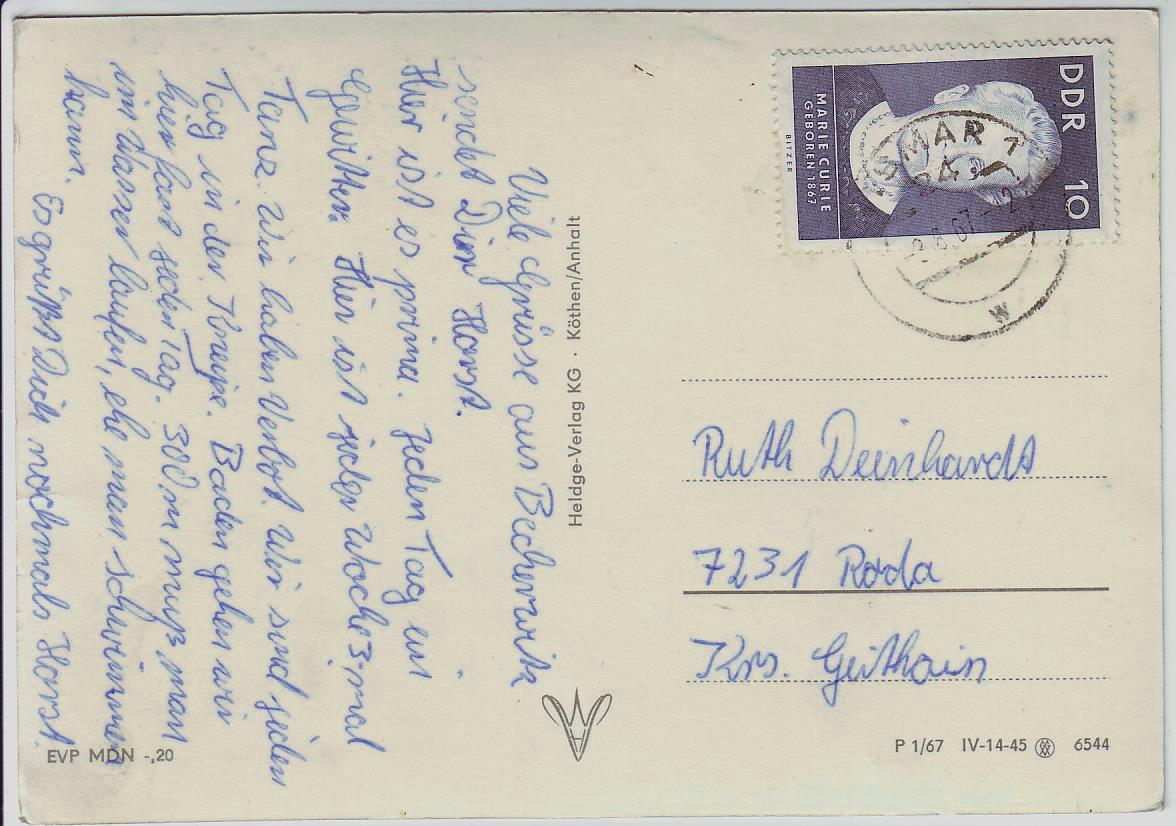 Viele Grüsse aus Becherwitz
sendet Dir Horst.
Hier ist es prima. Jeden Tag ein
Gewitter. Hier ist jeder Woche 3-mal
Tanz. Wir haben Verbot. Wir sind jeden
Tag in der Kneipe. Baden gehen wir
hier fast jeden Tag. 300 m muß man
im Wasser laufen, ehe man schwimmen
kann.
Es grüßt Dich nochmals Horst.
EVP MDN -,20
Heldge-Verlag KG · Köthen/Anhalt
DDR 10
MARIE CURIE
GEBOREN 1867
BITZER
SMAR 1
24
8.67
w
Ruth Deinhardt
7231 Roda
Krs. Geithain
P 1/67 IV-14-45 6544